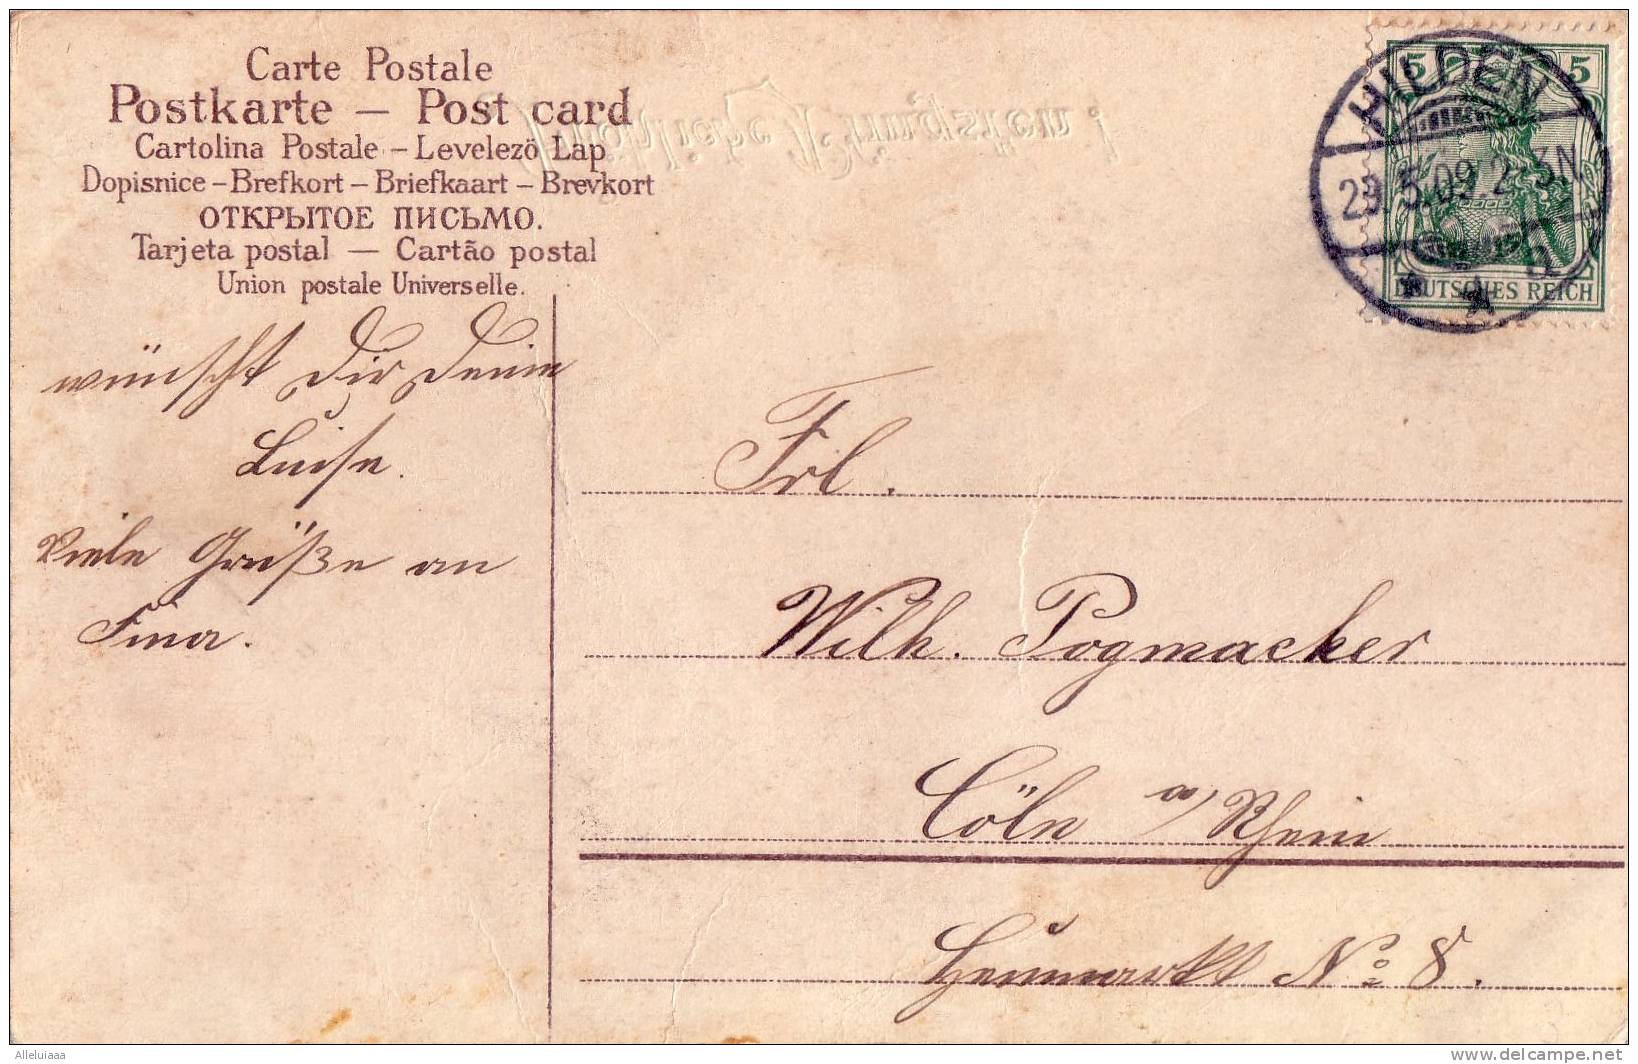 Carte Postale
Postkarte – Post card
Cartolina Postale – Levelezö Lap
Dopisnice – Brefkort – Briefkaart – Brevkort
ОТКРЫТОЕ ПИСЬМО.
Tarjeta postal — Cartão postal
Union postale Universelle.
Fröhliche Pfingsten!
HILDEN
29.5.09.2-3N
5 5
DEUTSCHES REICH
wünscht Dir Deine
Luise.
Viele Grüße an
Fina.
Frl.
Wilh. Pogmacker
Cöln a/Rhein
Heumarkt No 8.
Alleluiaaa
www.delcampe.net